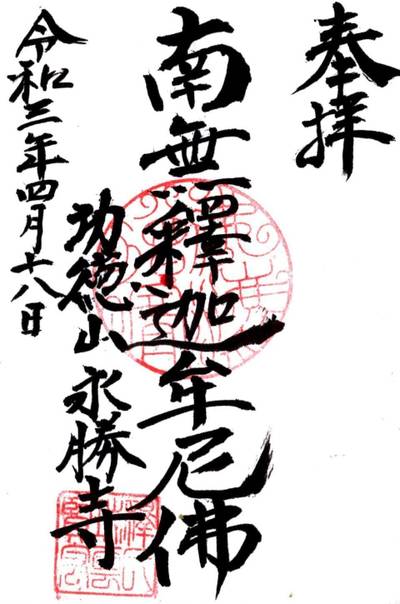 奉拝
南無釋迦牟尼佛
功徳山 永勝寺
令和三年四月十八日